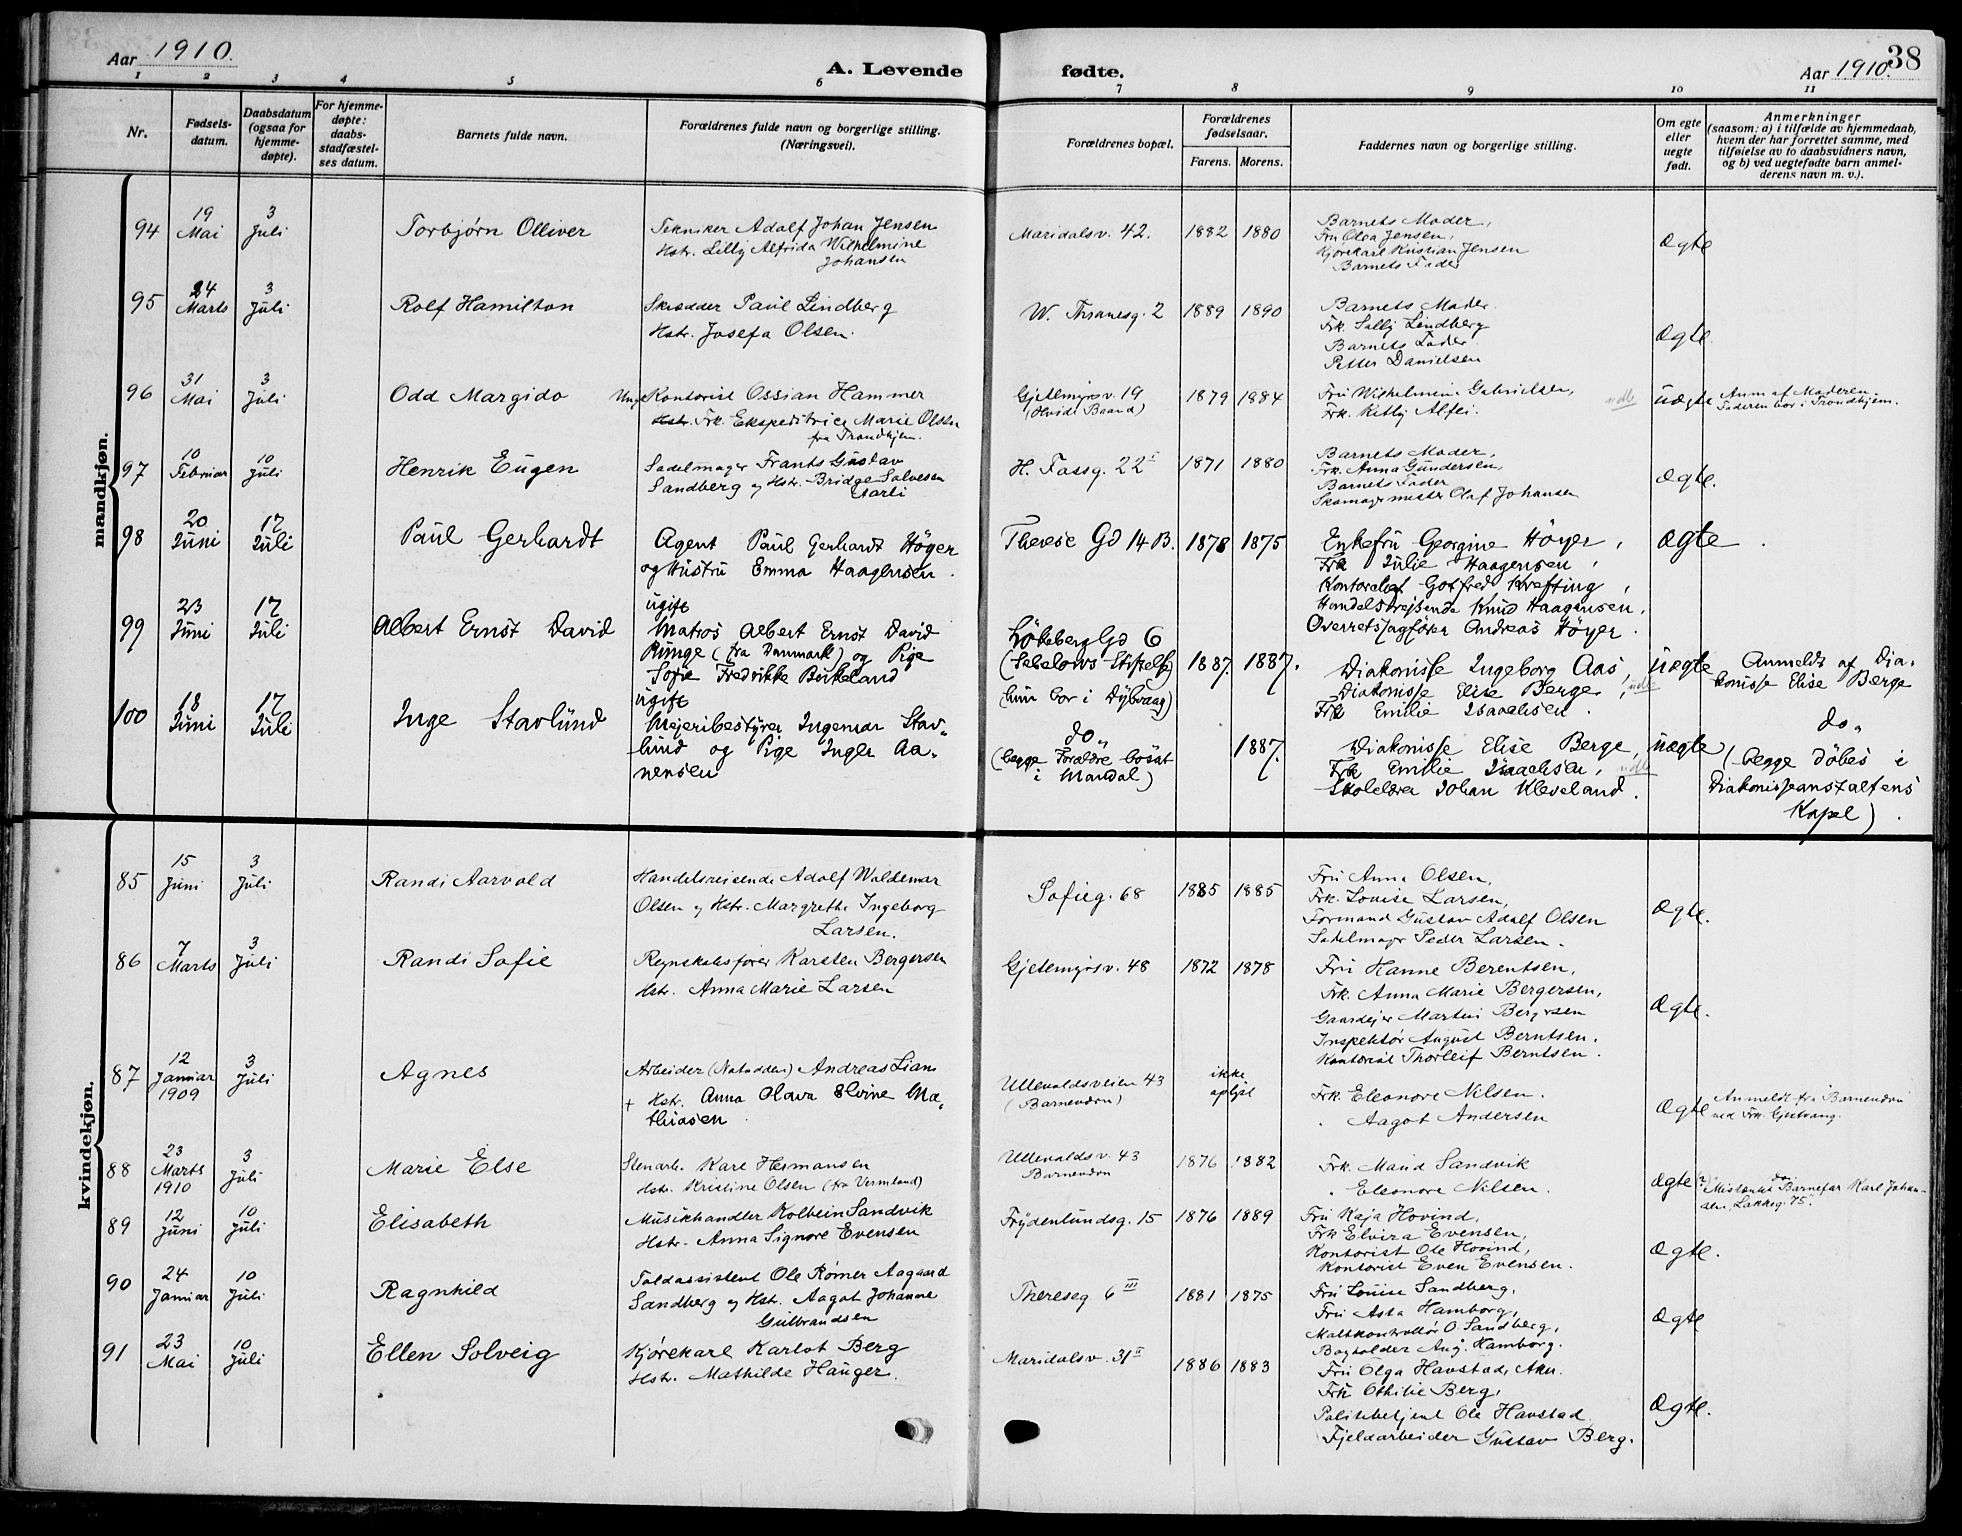 Aar 1910.
A. Levende fødte.
Aar 1910.
38
1 2 3 4 5 6 7 8 9 10 11
Nr.
Fødsels-
datum.
Daabsdatum
(ogsaa for
hjemme-
døpte).
For hjemme-
døpte:
daabs-
stadfæstel-
ses datum.
Barnets fulde navn.
Forældrenes fulde navn og borgerlige stilling.
(Næringsvei).
Forældrenes bopæl.
Forældrenes
fødselsaar.
Farens. Morens.
Faddernes navn og borgerlige stilling.
Om egte
eller
uegte
født.
Anmerkninger
(saasom: a) i tilfælde av hjemmedaab,
hvem der har forrettet samme, med
tilføielse av to daabsvidners navn,
og b) ved uegtefødte barn anmel-
derens navn m. v.).
mandkjøn.
94
19
Mai
3
Juli
Torbjørn Olliver
Tekniker Adolf Johan Jensen
Hstr. Lilly Alfrida Wilhelmine
Johansen
Maridalsv. 42.
1882 1880
Barnets Moder,
Fru Olea Jensen,
Kjørekarl Kristian Jensen
Barnets Fader
Ægte
95
24
Marts
3
Juli
Rolf Hamilton
Skrædder Paul Lindberg
Hstr. Josefa Olsen.
W. Thranesg. 2
1889 1890
Barnets Moder.
Frk. Sally Lindberg
Barnets Fader
Petter Danielsen
Ægte.
96
31
Mai
3
Juli
Odd Margido
Ung. Kontorist Ossian Hammer
Hstr. Frk. Ekspeditrice Marie Olsen
fra Trondhjem.
Gjetemyrsv. 19
(Hvide Baand)
1879 1884
Fru Wilhelmine Gabrielsen,
Frk. Kitty Alfei.
udte
uægte
Anm af Moderen
Faderen bor i Trondhjem.
97
10
Februar
10
Juli
Henrik Eugen
Sadelmager Frants Gustav
Sandberg og Hstr. Bridge Salvesen
Aarli
H. Fossg. 22 I
1871 1880
Barnets Moder,
Frk. Anna Gundersen,
Barnets Fader
Skomagermester Olaf Johansen
Ægte.
98
20
Juni
17
Juli
Paul Gerhardt
Agent Paul Gerhardt Höyer
og Hustru Emma Haagensen.
Therese Gd 14 B.
1878 1875
Enkefru Georgine Höyer,
Frk Julie Haagensen,
Kontorchef Gotfred Krefting,
Handelsrejsende Knud Haagensen.
Overretssagfører Andreas Höyer.
Ægte.
99
23
Juni
17
Juli
Albert Ernst David
ugift
Matros Albert Ernst David
Runge (fra Danmark) og Pige
Sofie Fredrikke Birkeland
Lökeberg Gd 6
(Sebelows Stiftelse)
hun bor i Dybvaag)
1887. 1887.
Diakonisse Ingeborg Aas,
Diakonisse Elise Berge,
Frk Emilie Isaachsen.
udte
uægte
Anmeldt af Dia-
konisse Elise Berge
100
18
Juni
17
Juli
Inge Stavlund
ugift
Mejeribestyrer Ingemar Stav-
lund og Pige Inger Aa-
nensen
do„
(begge Forældre bosat
i Mandal)
1887.
Diakonisse Elise Berge,
Frk Emilie Isaachsen,
Skolelærer Johan Kleveland.
udte
uægte
do„
(begge döbes i
Diakonisseanstaltens
Kapel).
kvindekjøn.
85
15
Juni
3
Juli
Randi Aarvold
Handelsreisende Adolf Waldemar
Olsen og Hstr. Margrethe Ingeborg
Larsen.
Sofieg. 68
1885 1885
Fru Anna Olsen,
Frk. Louise Larsen,
Formand Gustav Adolf Olsen
Sadelmager Peder Larsen.
Ægte.
86
7
Marts
3
Juli
Randi Sofie
Regnskabsfører Karsten Bergersen
Hstr. Anna Marie Larsen
Gjetemyrsv. 48
1872 1878
Fru Hanne Berentsen,
Frk. Anna Marie Bergersen,
Gaardejer Martin Bergersen
Inspektør August Berntsen.
Kontorist Thorleif Berntsen.
Ægte.
87
12
Januar
1909
3
Juli
Agnes
Arbeider (Notodden) Andreas Lian
+ Hstr. Anna Olava Elvine Ma-
thiasen.
Ullevoldsveien 43
(Barnendrn)
ikke
oplyst
Frk. Eleonore Nilsen.
„ Aagot Andersen
Ægte
Anmeldt fra Barnendrn
ved Frk. Gjestvang.
88
23
Marts
1910
3
Juli
Marie Else
Stenarb. Karl Hermansen
Hstr. Kristine Olsen (fra Vermland)
Ullevoldsv. 43
Barnendrn
1876 1882
Frk. Maud Sandvik
„ Eleonore Nilsen.
Ægte (?)
do„
"Mistænkt Barnefar Karl Johan-
sen, Lakkeg. 75".
89
12
Juni
10
Juli
Elisabeth
Musikhandler Kolbein Sandvik
Hstr. Anna Signore Evensen
Frydenlundsg. 15
1876 1889
Fru Kaja Hovind,
Frk Elvira Evensen,
Kontorist Ole Hovind,
Kontorist Even Evensen.
Ægte.
90
24
Januar
10
Juli
Ragnhild
Toldassistent Ole Rømer Aagaard
Sandberg og Hst. Aagot Johanne
Gulbrandsen
Thereseg 6 III
1881 1875
Fru Louise Sandberg,
Fru Asta Hamborg,
Maltkontrollør O. Sandberg,
Bogholder Aug. Hamborg.
Ægte
91
23
Mai
10
Juli
Ellen Solveig
Kjørekarl Karlot Berg
Hstr. Mathilde Hauger.
Maridalsv. 31 II
1886 1883
Fru Olga Havstad, Aker.
Frk Othilie Berg,
Politibetjent Ole Havstad
Fjeldarbeider Gustav Berg.
Ægte.